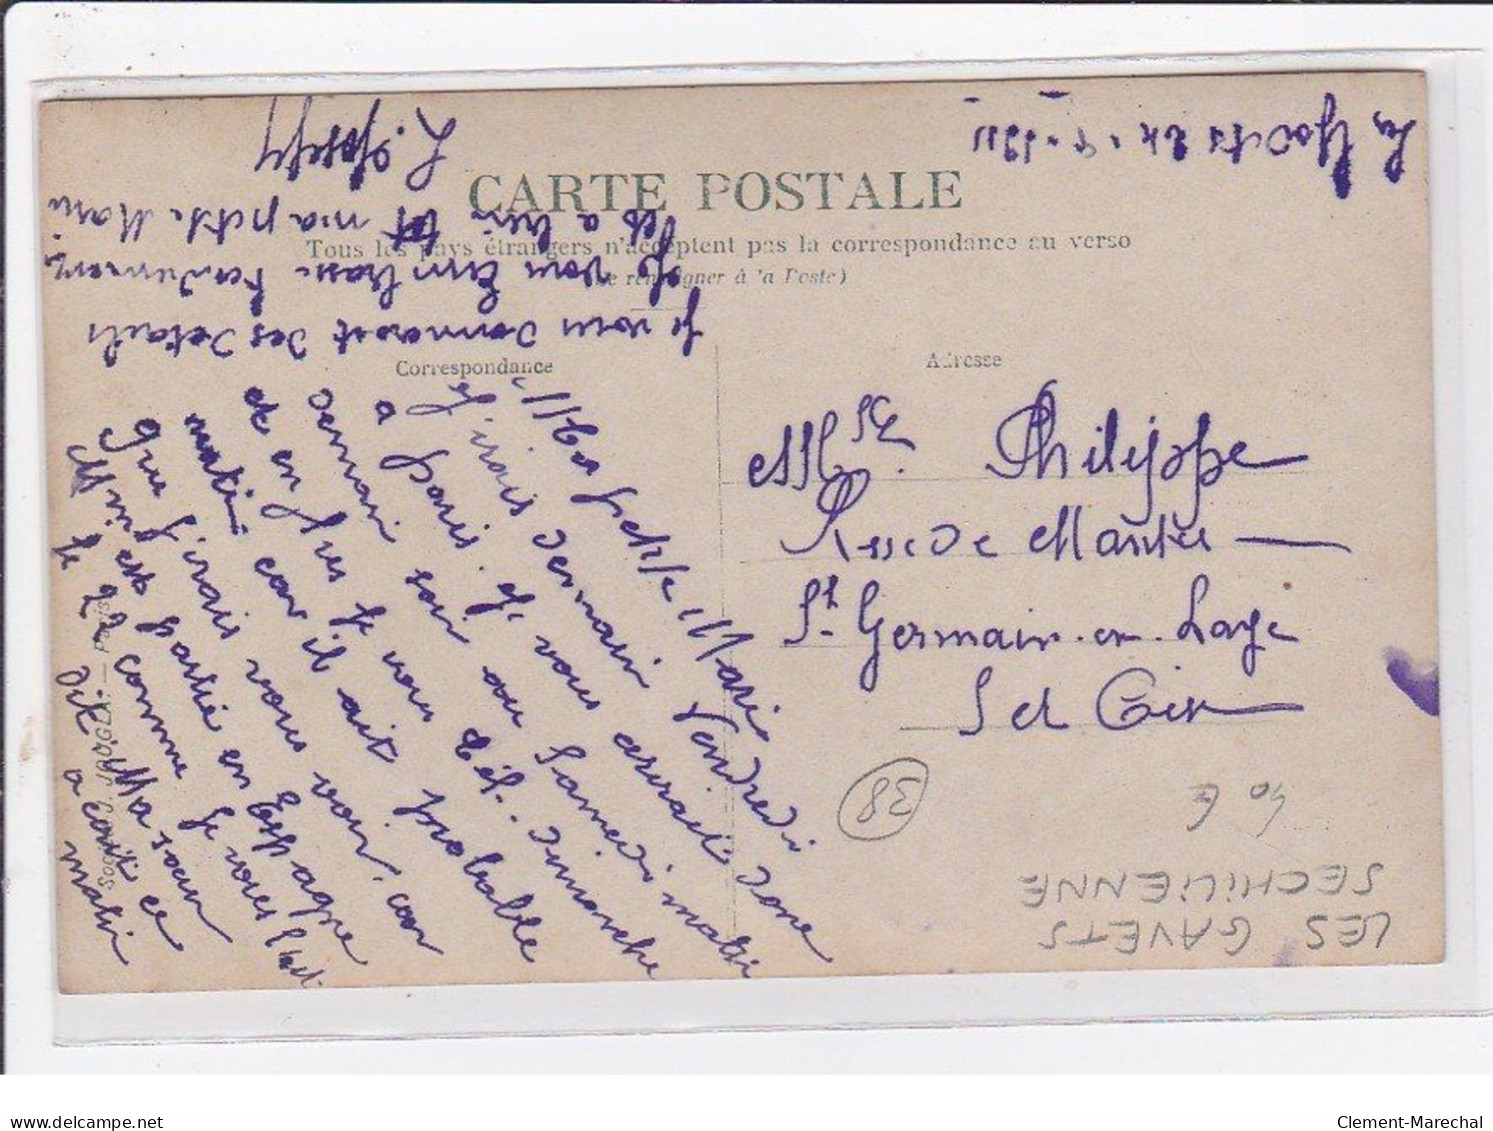 Les Gavets 24 - 8 - 1911
CARTE POSTALE
Tous les pays étrangers n'acceptent pas la correspondance au verso
(Se renseigner à la Poste)
Correspondance
Adresse
Ma petite Marie
J'irais demain Vendredi
a Paris. J'vous arivais donc
demain soir ou Samedi matin
et en Jres je vous tél. dimanche
matin car il ait probable
que j'irais vous voir, car
Mimi est partie en Espagne
le 22 comme je vous l'ait
dit Ma sœur
a écrit ce
matin
Je vous donnerait des détails
Je vous embrasse tendrement
et a lui ma petite Marie
L. Joseph
Mlle Philippe
Rue de Mantes
St Germain-en-Laye
S et Oise
38
40 €
LES GAVETS
SECHILIENNE
Clement-Marechal
delcampe.net